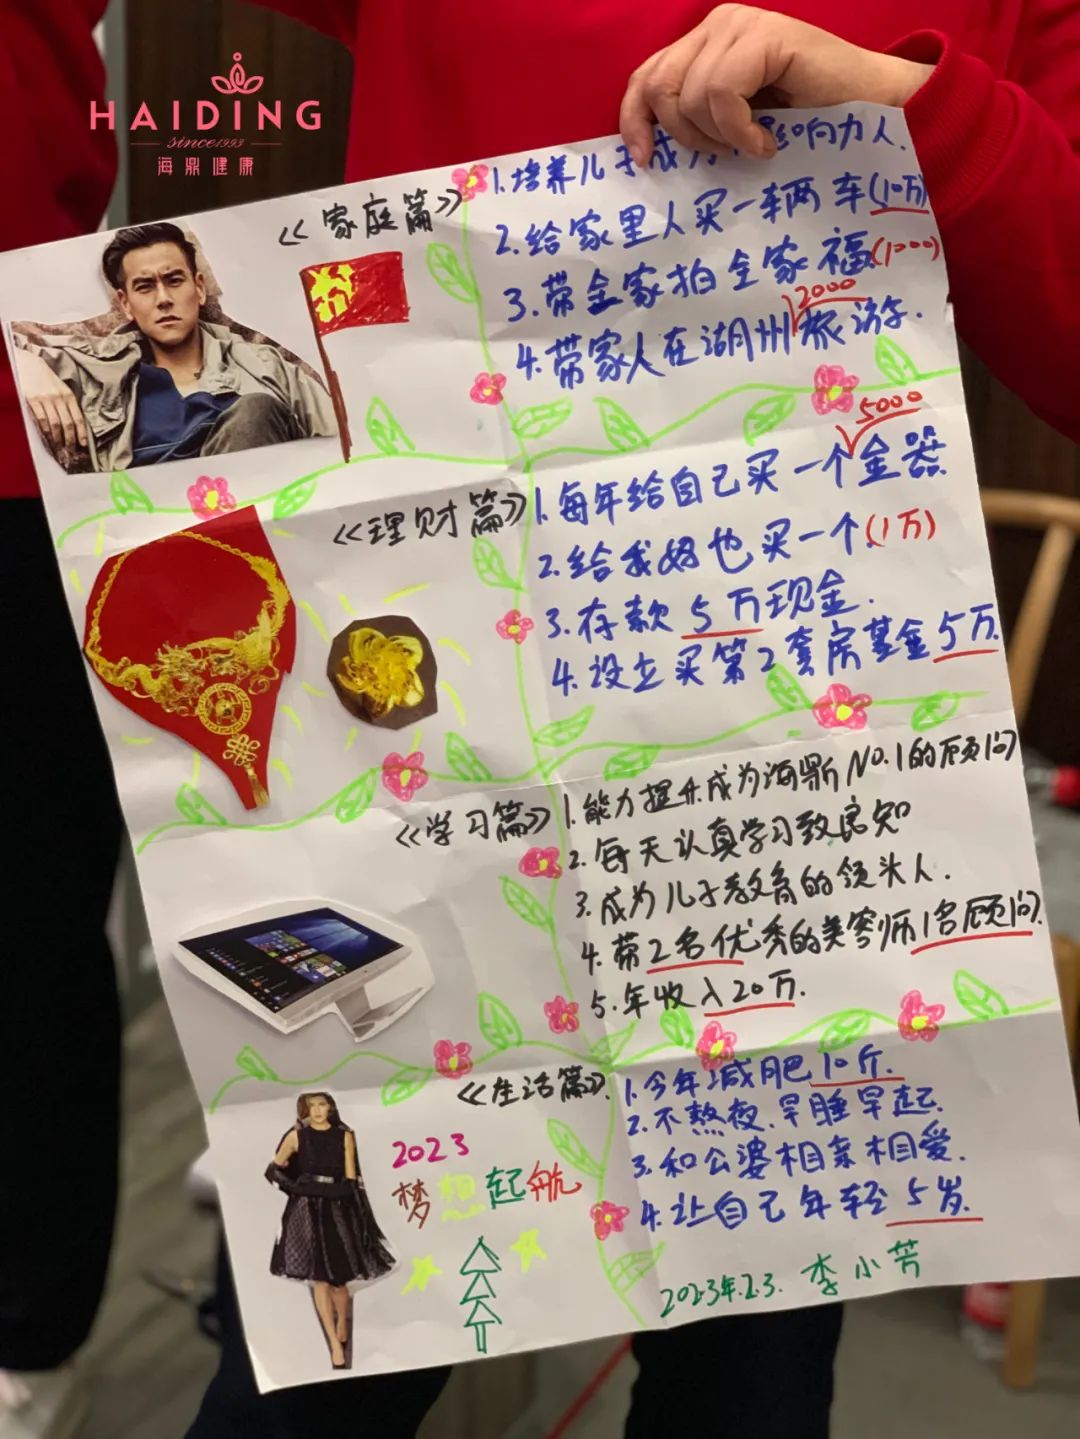 HAIDING
since1993
海鼎健康
《家庭篇》
1.培养儿子成为 影响力人.
2.给家里人买一车两车(10万)
3.带全家拍全家福(1000)
2000
4.带家人在湖州旅游.
《理财篇》
5000
1.每年给自己买一个金器
2.给我妈也买一个.(1万)
3.存款5万现金.
4.设立买第2套房基金5万.
《学习篇》
1.能力提升成为海鼎NO.1的顾问
2.每天认真学习致良知
3.成为儿子教育的领头人.
4.带2名优秀的美容师1名顾问.
5.年收入20万.
《生活篇》
1.今年减肥10斤.
2.不熬夜.早睡早起.
3.和公婆相亲相爱.
4.让自己年轻5岁.
2023
梦想起航
2023年.2.3. 李小芳